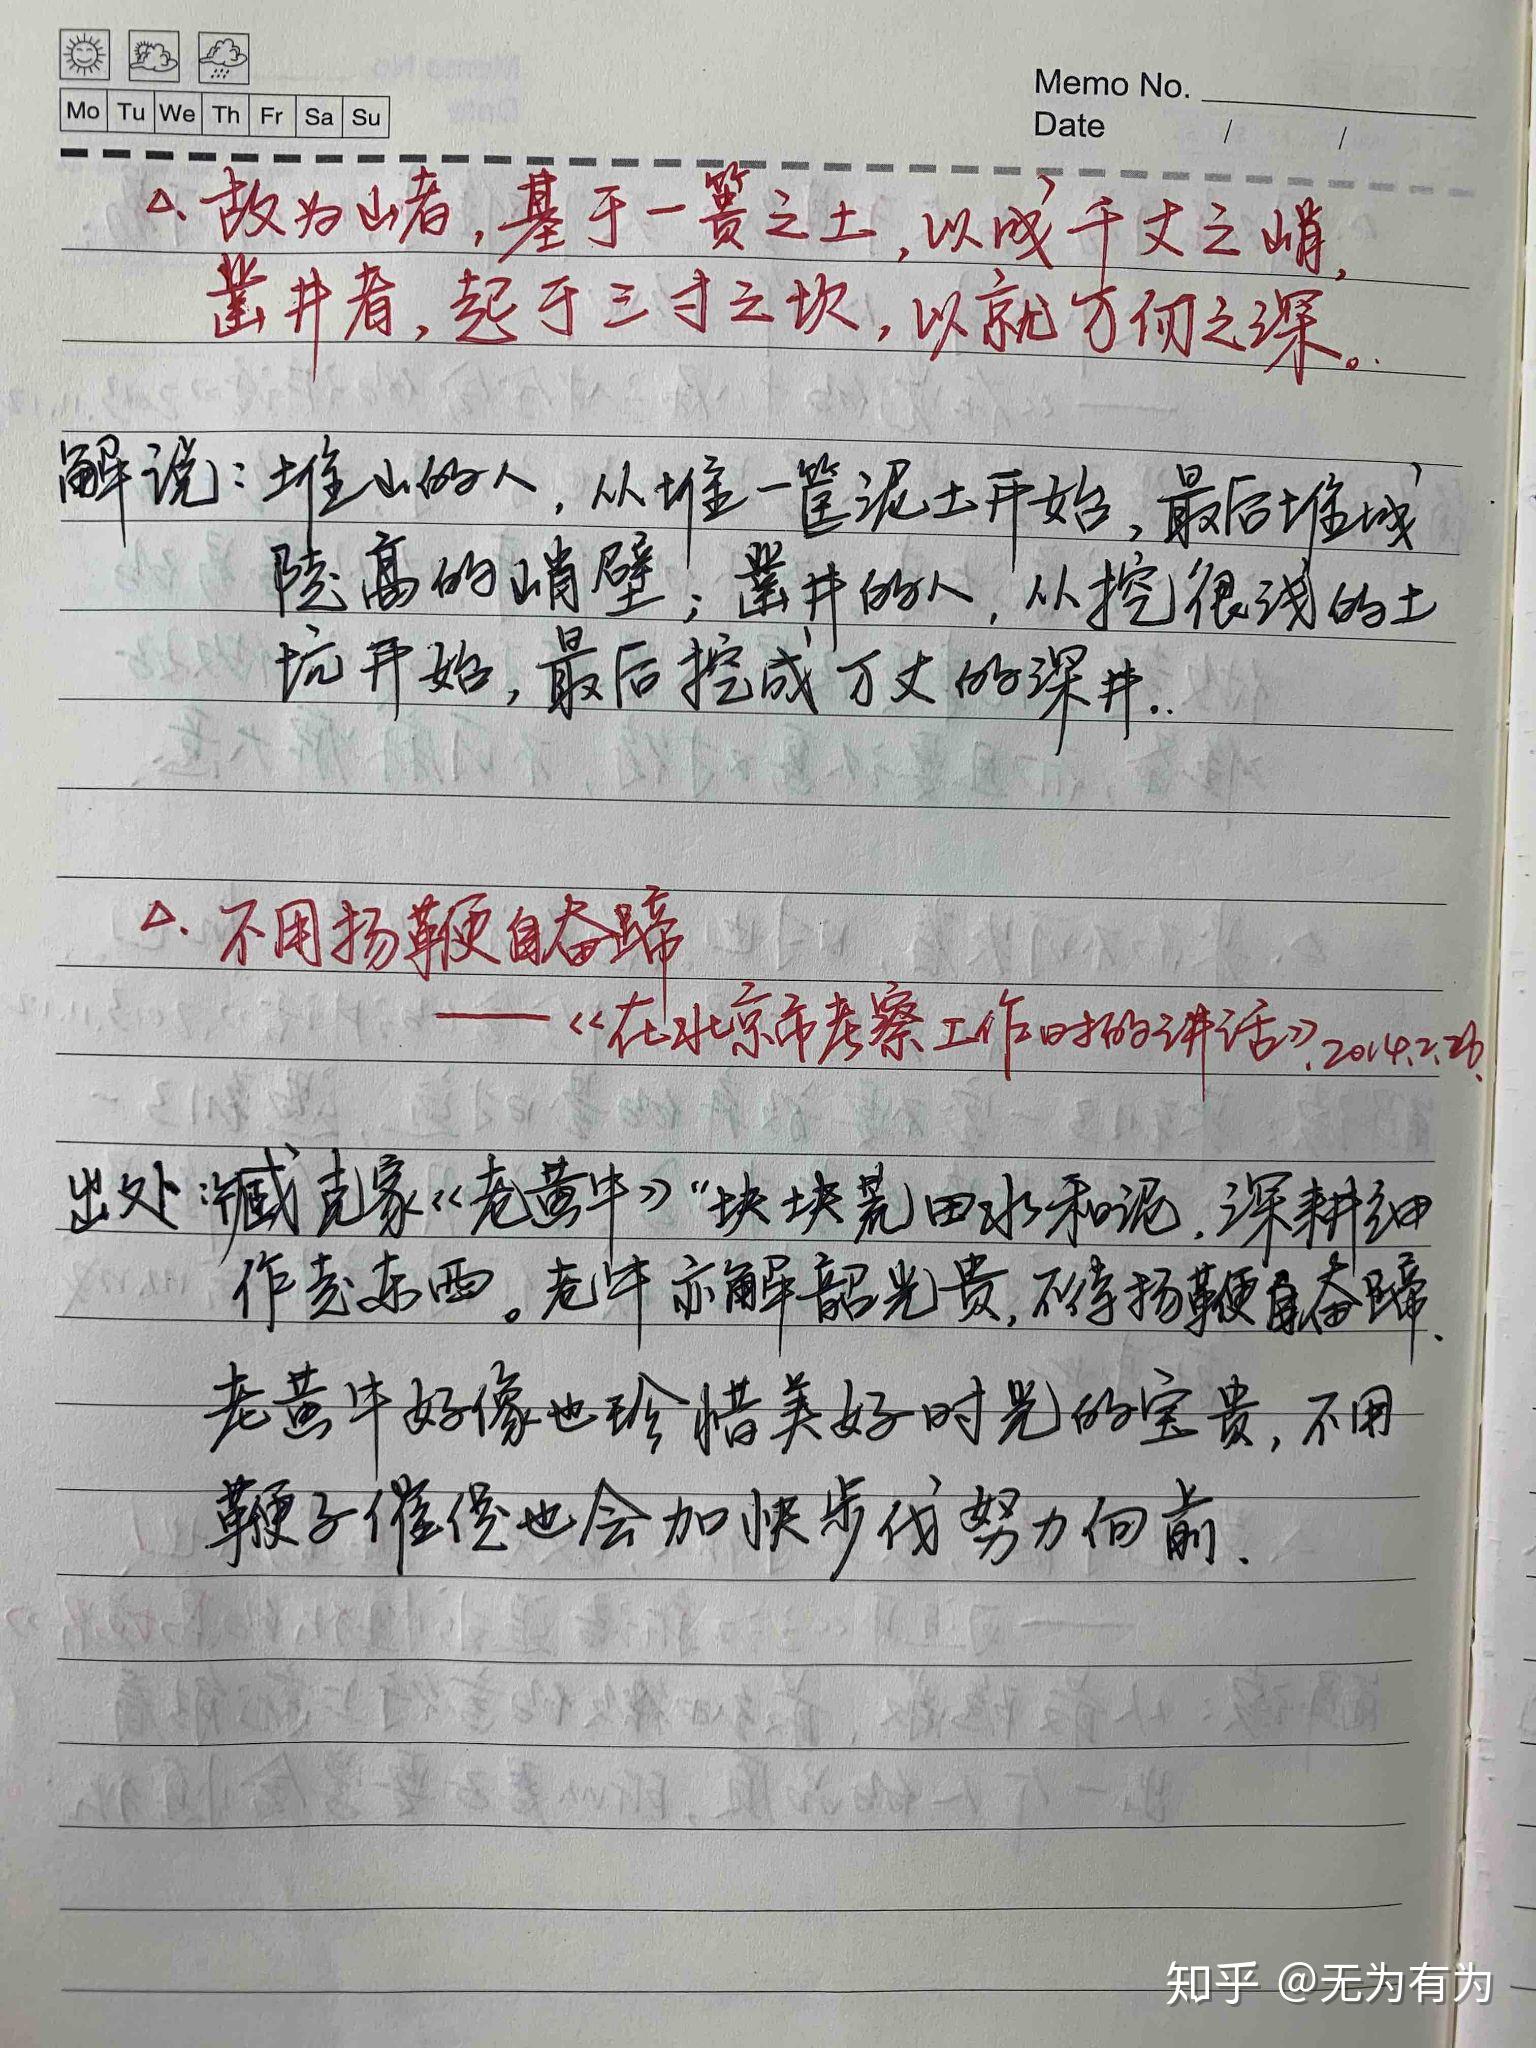 Mo Tu We Th Fr Sa Su
Memo No.
Date / /
△. 故为山者，基于一篑之土，以成千丈之峭，
凿井者，起于三寸之坎，以就万仞之深。
解说：堆山的人，从堆一筐泥土开始，最后堆成
陡高的峭壁；凿井的人，从挖很浅的土
坑开始，最后挖成万丈的深井..
△. 不用扬鞭自奋蹄
——《在北京市考察工作时的讲话》.2014.2.26.
出处：臧克家《老黄牛》“块块荒田水和泥，深耕细
作走东西。老牛亦解韶光贵，不待扬鞭自奋蹄.
老黄牛好像也珍惜美好时光的宝贵，不用
鞭子催促也会加快步伐努力向前.
知乎 @无为有为